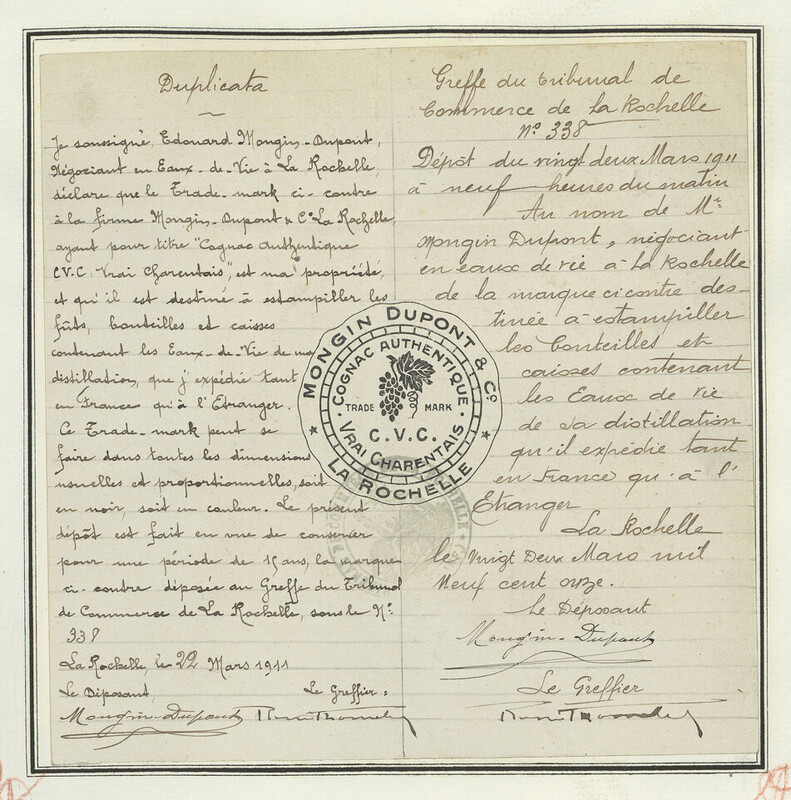 Duplicata
Je soussigné, Edouard Mongin-Dupont,
Négociant en Eaux-de-Vie à La Rochelle,
déclare que le Trade-mark ci-contre
à la firme Mongin-Dupont & Cº La Rochelle,
ayant pour titre "Cognac Authentique
C.V.C. Vrai Charentais", est ma propriété,
et qu'il est destiné à estampiller les
fûts, bouteilles et caisses
contenant les Eaux-de-Vie de ma
distillation, que j'expédie tant
en France qu'à l'Etranger.
Ce Trade-mark peut se
faire dans toutes les dimensions
usuelles et proportionnelles, soit
en noir, soit en couleur. Le présent
dépôt est fait en vue de conserver
pour une période de 15 ans, la marque
ci-contre déposée au Greffe du Tribunal
de Commerce de La Rochelle, sous le Nº:
338
La Rochelle, le 22 Mars 1911
Le Déposant, Le Greffier:
Mongin-Dupont
MONGIN DUPONT & Cº
COGNAC AUTHENTIQUE
TRADE MARK
C.V.C.
VRAI CHARENTAIS
LA ROCHELLE
Greffe du tribunal de
Commerce de La Rochelle
Nº 338
Dépôt du vingt deux Mars 1911
à neuf heures du matin
Au nom de Mr
Mongin Dupont, négociant
en eaux de vie à La Rochelle
de la marque ci contre des-
tinée à estampiller
les bouteilles et
caisses contenant
les Eaux de vie
de sa distillation
qu'il expédie tant
en France qu'à l'
Etranger
La Rochelle
le Vingt Deux Mars mil
Neuf cent onze.
Le Déposant
Mongin-Dupont
Le Greffier